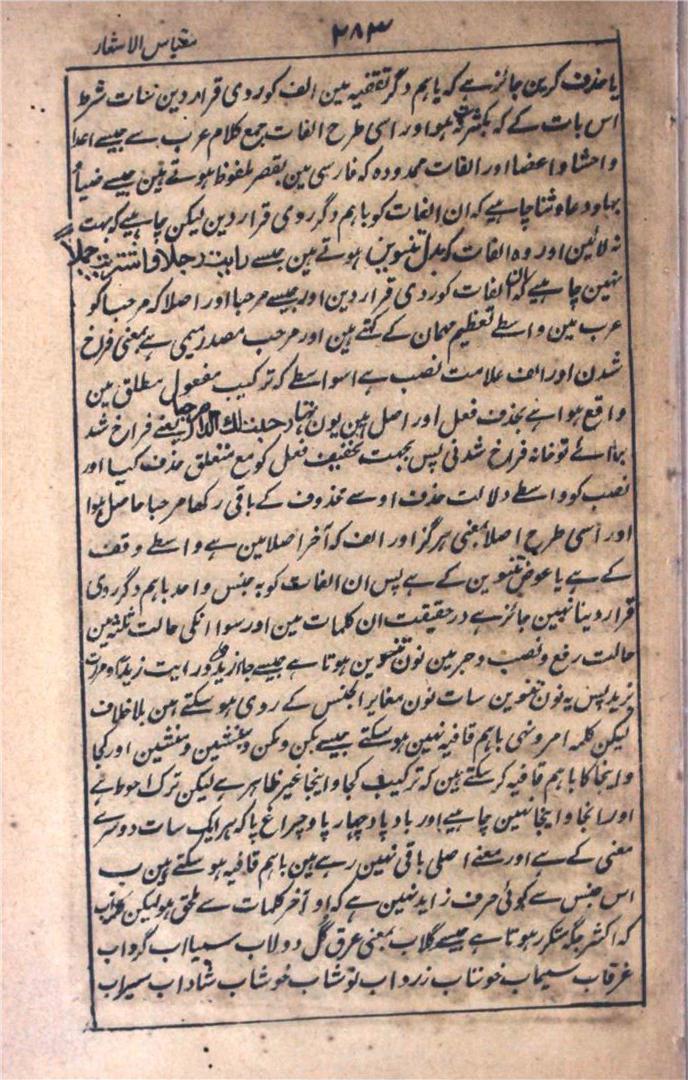 ۲۸۳
مقیاس الاشعار
یا حذف کرین جائز ہے کہ یا ہم دگر تقفیہ مین الف کو روی قرار دین نتات شرط
اس بات کے کہ بکثرت نہو اور اسی طرح الفات جمع کلام عرب سے جیسے اعدا
و احشا و اعضا اور الفات ممدودہ کہ فارسی مین بقصر ملفوظ ہوتے ہین جیسے ضیاء
بہا و دعا و ثنا چاہیے کہ ان الفات کو باہم دگر روی قرار دین لیکن چاہیے کہ بہت
نہ لائین اور وہ الفات کہ بدل تنوین ہوتے ہین جیسے رایت رجلا و اشتریت جملاً
نہین چاہیے کہ ان الفات کو روی قرار دین اور جیسے مرحبا اور اصلا کہ مرحبا کو
عرب مین واسطے تعظیم مہمان کے کہتے ہین اور مرحب مصدر میمی ہے بمعنی فراخ
شدن اور الف علامت نصب ہے اسواسطے کہ ترکیب مفعول مطلق مین
واقع ہوا ہے بحذف فعل اور اصل مین یون تھا رحبت لك الدار مرحبا یعنے فراخ شد
برائے تو خانہ فراخ شدنی پس بجہت تخفیف فعل کو مع متعلق حذف کیا اور
نصب کو واسطے دلالت حذف اوسے محذوف کے باقی رکھا مرحبا حاصل ہوا
اور اسی طرح اصلا بمعنی ہرگز اور الف کہ آخر اصلا مین ہے واسطے وقف
کے ہے یا عوض تنوین کے ہے پس ان الفات کو بہ جنس واحد باہم دگر روی
قرار دینا نہین جائز ہے در حقیقت ان کلمات مین اور سوا انکی حالت ثلثہ مین
حالت رفع و نصب و جر مین نون تنوین ہوتا ہے جیسے جا زیدٌ و رایت زیداً و مررت
بزید پس یہ نون تنوین سات نون مغایر الجنس کے روی ہو سکتے ہین بلا خلاف
لیکن کلمہ امر و نہی باہم قافیہ نہین ہو سکتے جیسے بکن و مکن و بنشین و منشین اور کجا
و اینجا کا باہم قافیہ کر سکتے ہین کہ ترکیب کجا و اینجا غیر ظاہر ہے لیکن ترک احوط ہے
اور آنجا و اینجا نہین چاہیے اور باد پا و چہار پا و چراغ پا کہ ہر ایک سات دوسرے
معنی کے ہے اور معنے اصلی باقی نہین رہے ہین باہم قافیہ ہو سکتے ہین ب
اس جنس سے کوئی حرف زاید نہین ہے کہ او آخر کلمات سے ملحق ہو لیکن
کہ اکثر جگہ متکرر ہوتا ہے جیسے گلاب بمعنی عرق گل دولاب سیماب گرداب
غرقاب سیماب خوناب زرداب نوشاب خوشاب شاداب سیراب